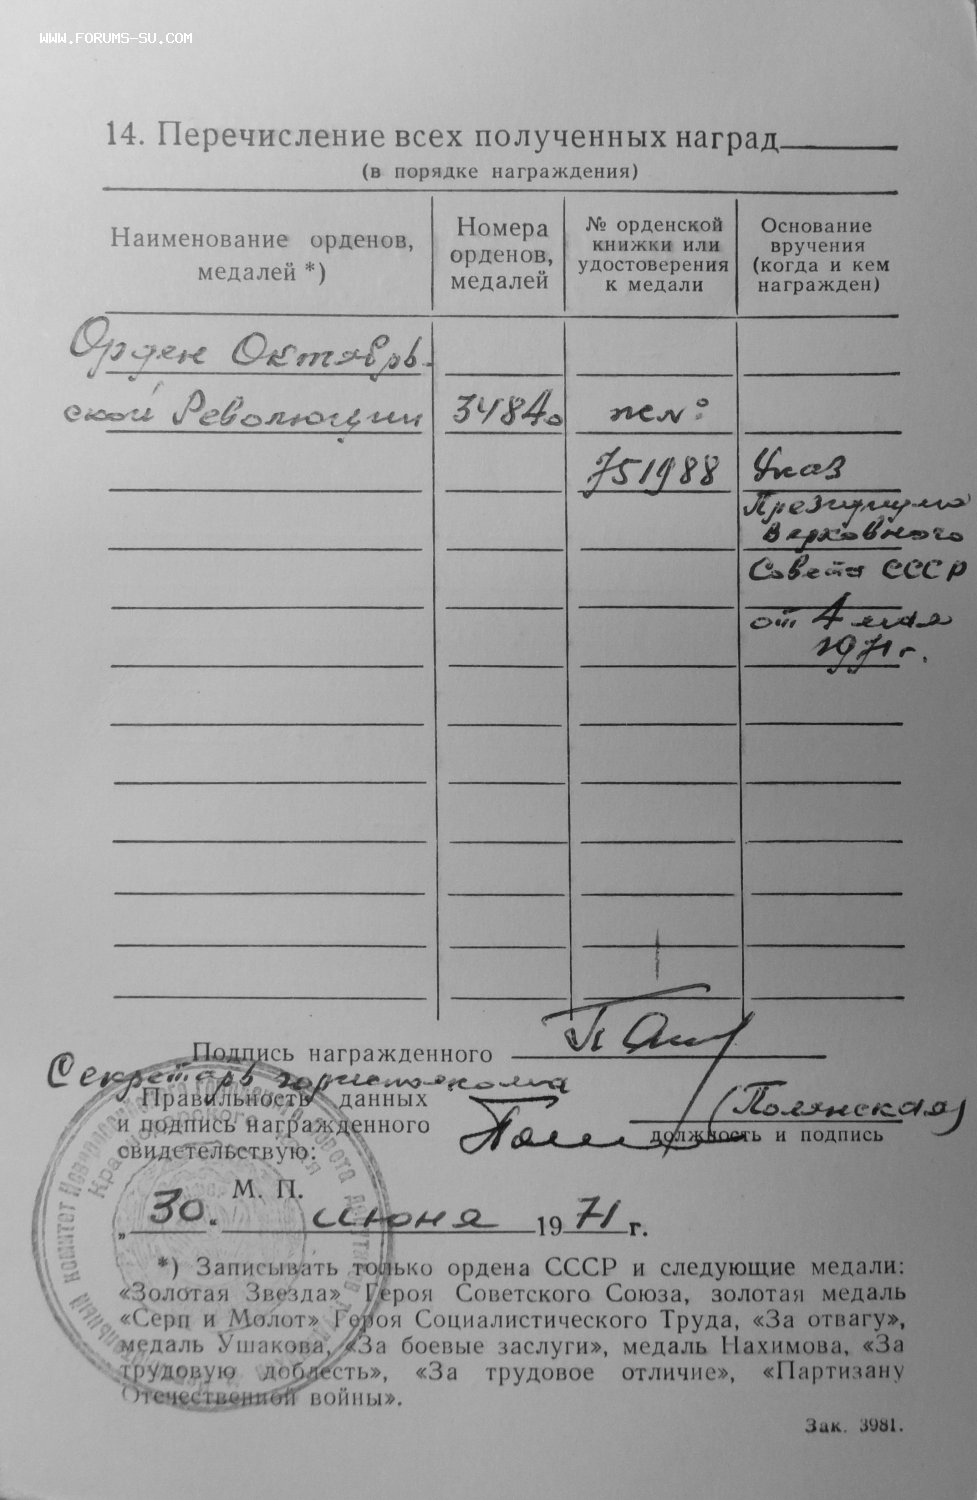 WWW.FORUMS-SU.COM
14. Перечисление всех полученных наград
(в порядке награждения)
Наименование орденов,
медалей *)
Номера
орденов,
медалей
№ орденской
книжки или
удостоверения
к медали
Основание
вручения
(когда и кем
награжден)
Орден Октябрь-
ской Революции
34840
751988
Указ
Президиума
Верховного
Совета СССР
от 4 мая
1971 г.
Подпись награжденного
Секретарь горисполкома
Правильность данных
и подпись награжденного
свидетельствую:
(Полянская)
должность и подпись
М. П.
„30." июня 1971 г.
*) Записывать только ордена СССР и следующие медали:
«Золотая Звезда» Героя Советского Союза, золотая медаль
«Серп и Молот» Героя Социалистического Труда, «За отвагу»,
медаль Ушакова, «За боевые заслуги», медаль Нахимова, «За
трудовую доблесть», «За трудовое отличие», «Партизану
Отечественной войны».
Зак. 3981.